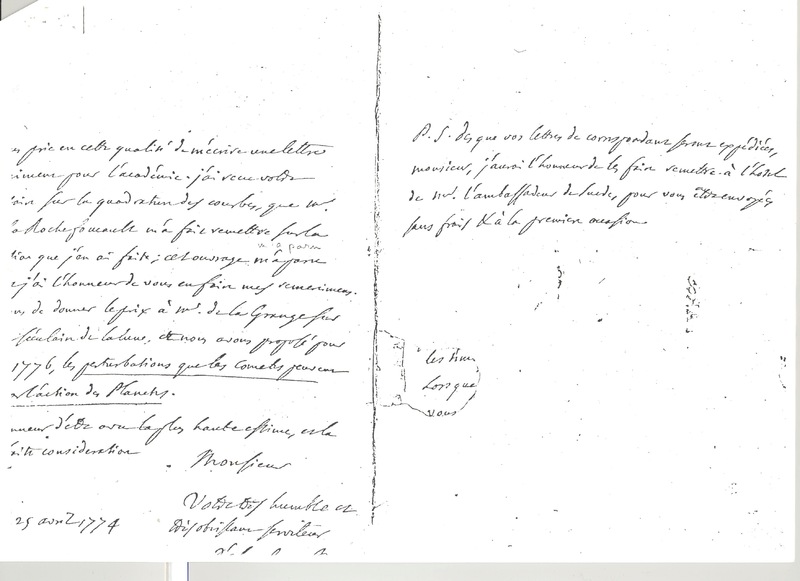 prie en cette qualité de m'écrire une lettre
pour l'académie. j'ai reçu votre
sur la quadrature des courbes, que mr.
Rochefoucault m'a fait remettre sur la
m'a paru
que j'en ai faite; cet ouvrage m'a paru
j'ai l'honneur de vous en faire mes remerciemens.
de donner le prix à mr. de la Grange sur
séculaire de la lune, et nous avons proposé pour
1776, les perturbations que les cometes peuvent
l'action des Planetes.
d'etre avec la plus haute estime, et la
consideration
Monsieur
Votre tres humble et
tres obeissant serviteur
25 avril 1774
P. S. des que vos lettres de correspondant seront expédiées,
monsieur, j'aurai l'honneur de les faire remettre à l'hotel
de mr. l'ambassadeur de suede, pour vous etre envoyées
sans frais & à la premiere occasion
les
Lorsque
vous